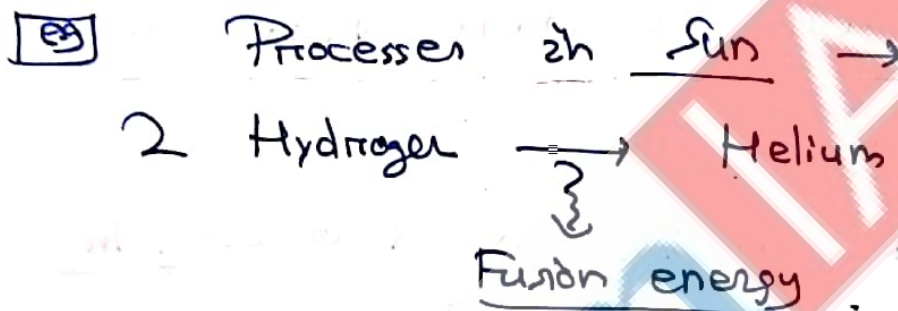 eg Processes in Sun →
2 Hydrogen → Helium
Fusion energy.